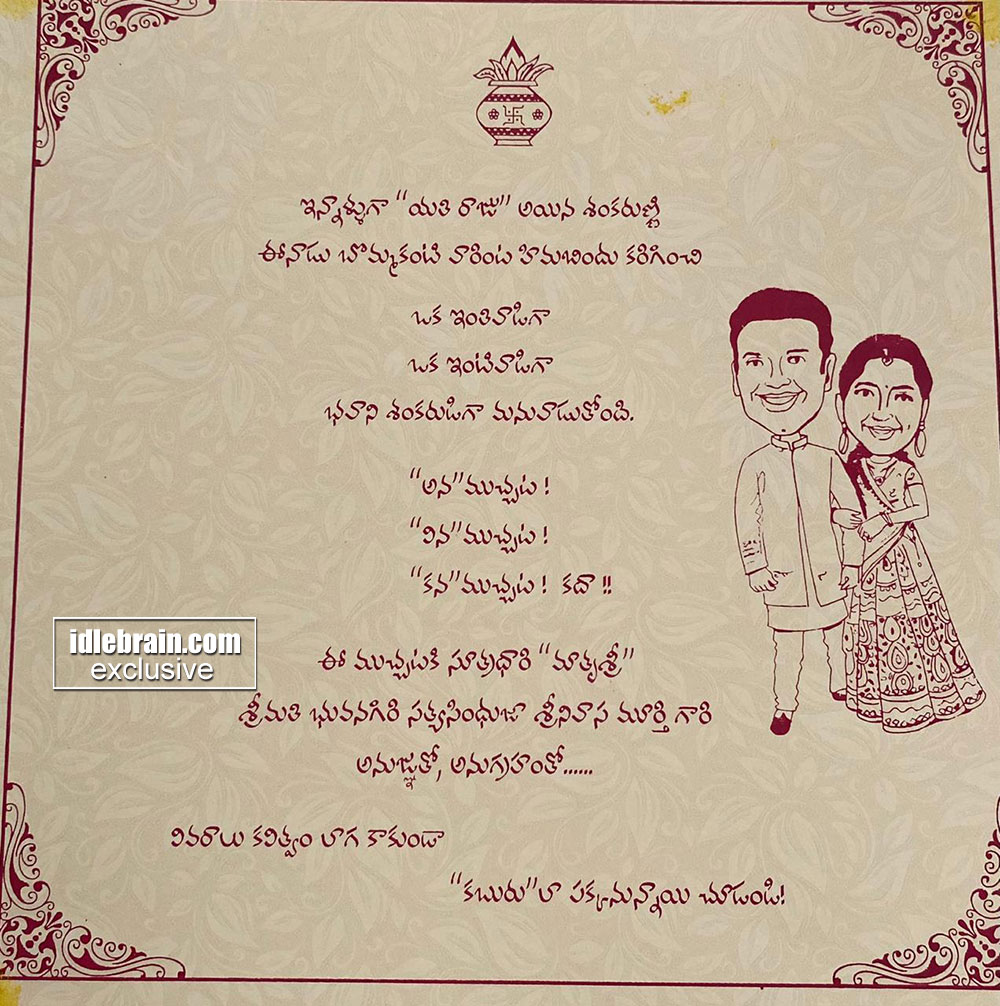 ఇన్నాళ్ళుగా "యతి రాజు" అయిన శంకరుణ్ణి
ఈనాడు బొమ్మకంటి వారింట హిమబిందు కరిగించి
ఒక ఇంతివాడిగా
ఒక ఇంటివాడిగా
భవాని శంకరుడిగా మనువాడుతోంది.
"అన"ముచ్చట !
"విన"ముచ్చట !
"కన"ముచ్చట ! కదా !!
idlebrain.com
exclusive
ఈ ముచ్చటకి సూత్రధారి "మాతృశ్రీ"
శ్రీమతి భువనగిరి సత్యసింధుజా శ్రీనివాస మూర్తి గారి
అనుజ్ఞతో, అనుగ్రహంతో......
వివరాలు కవిత్వం లాగ కాకుండా
"కబురు"లా పక్కనున్నాయి చూడండి!